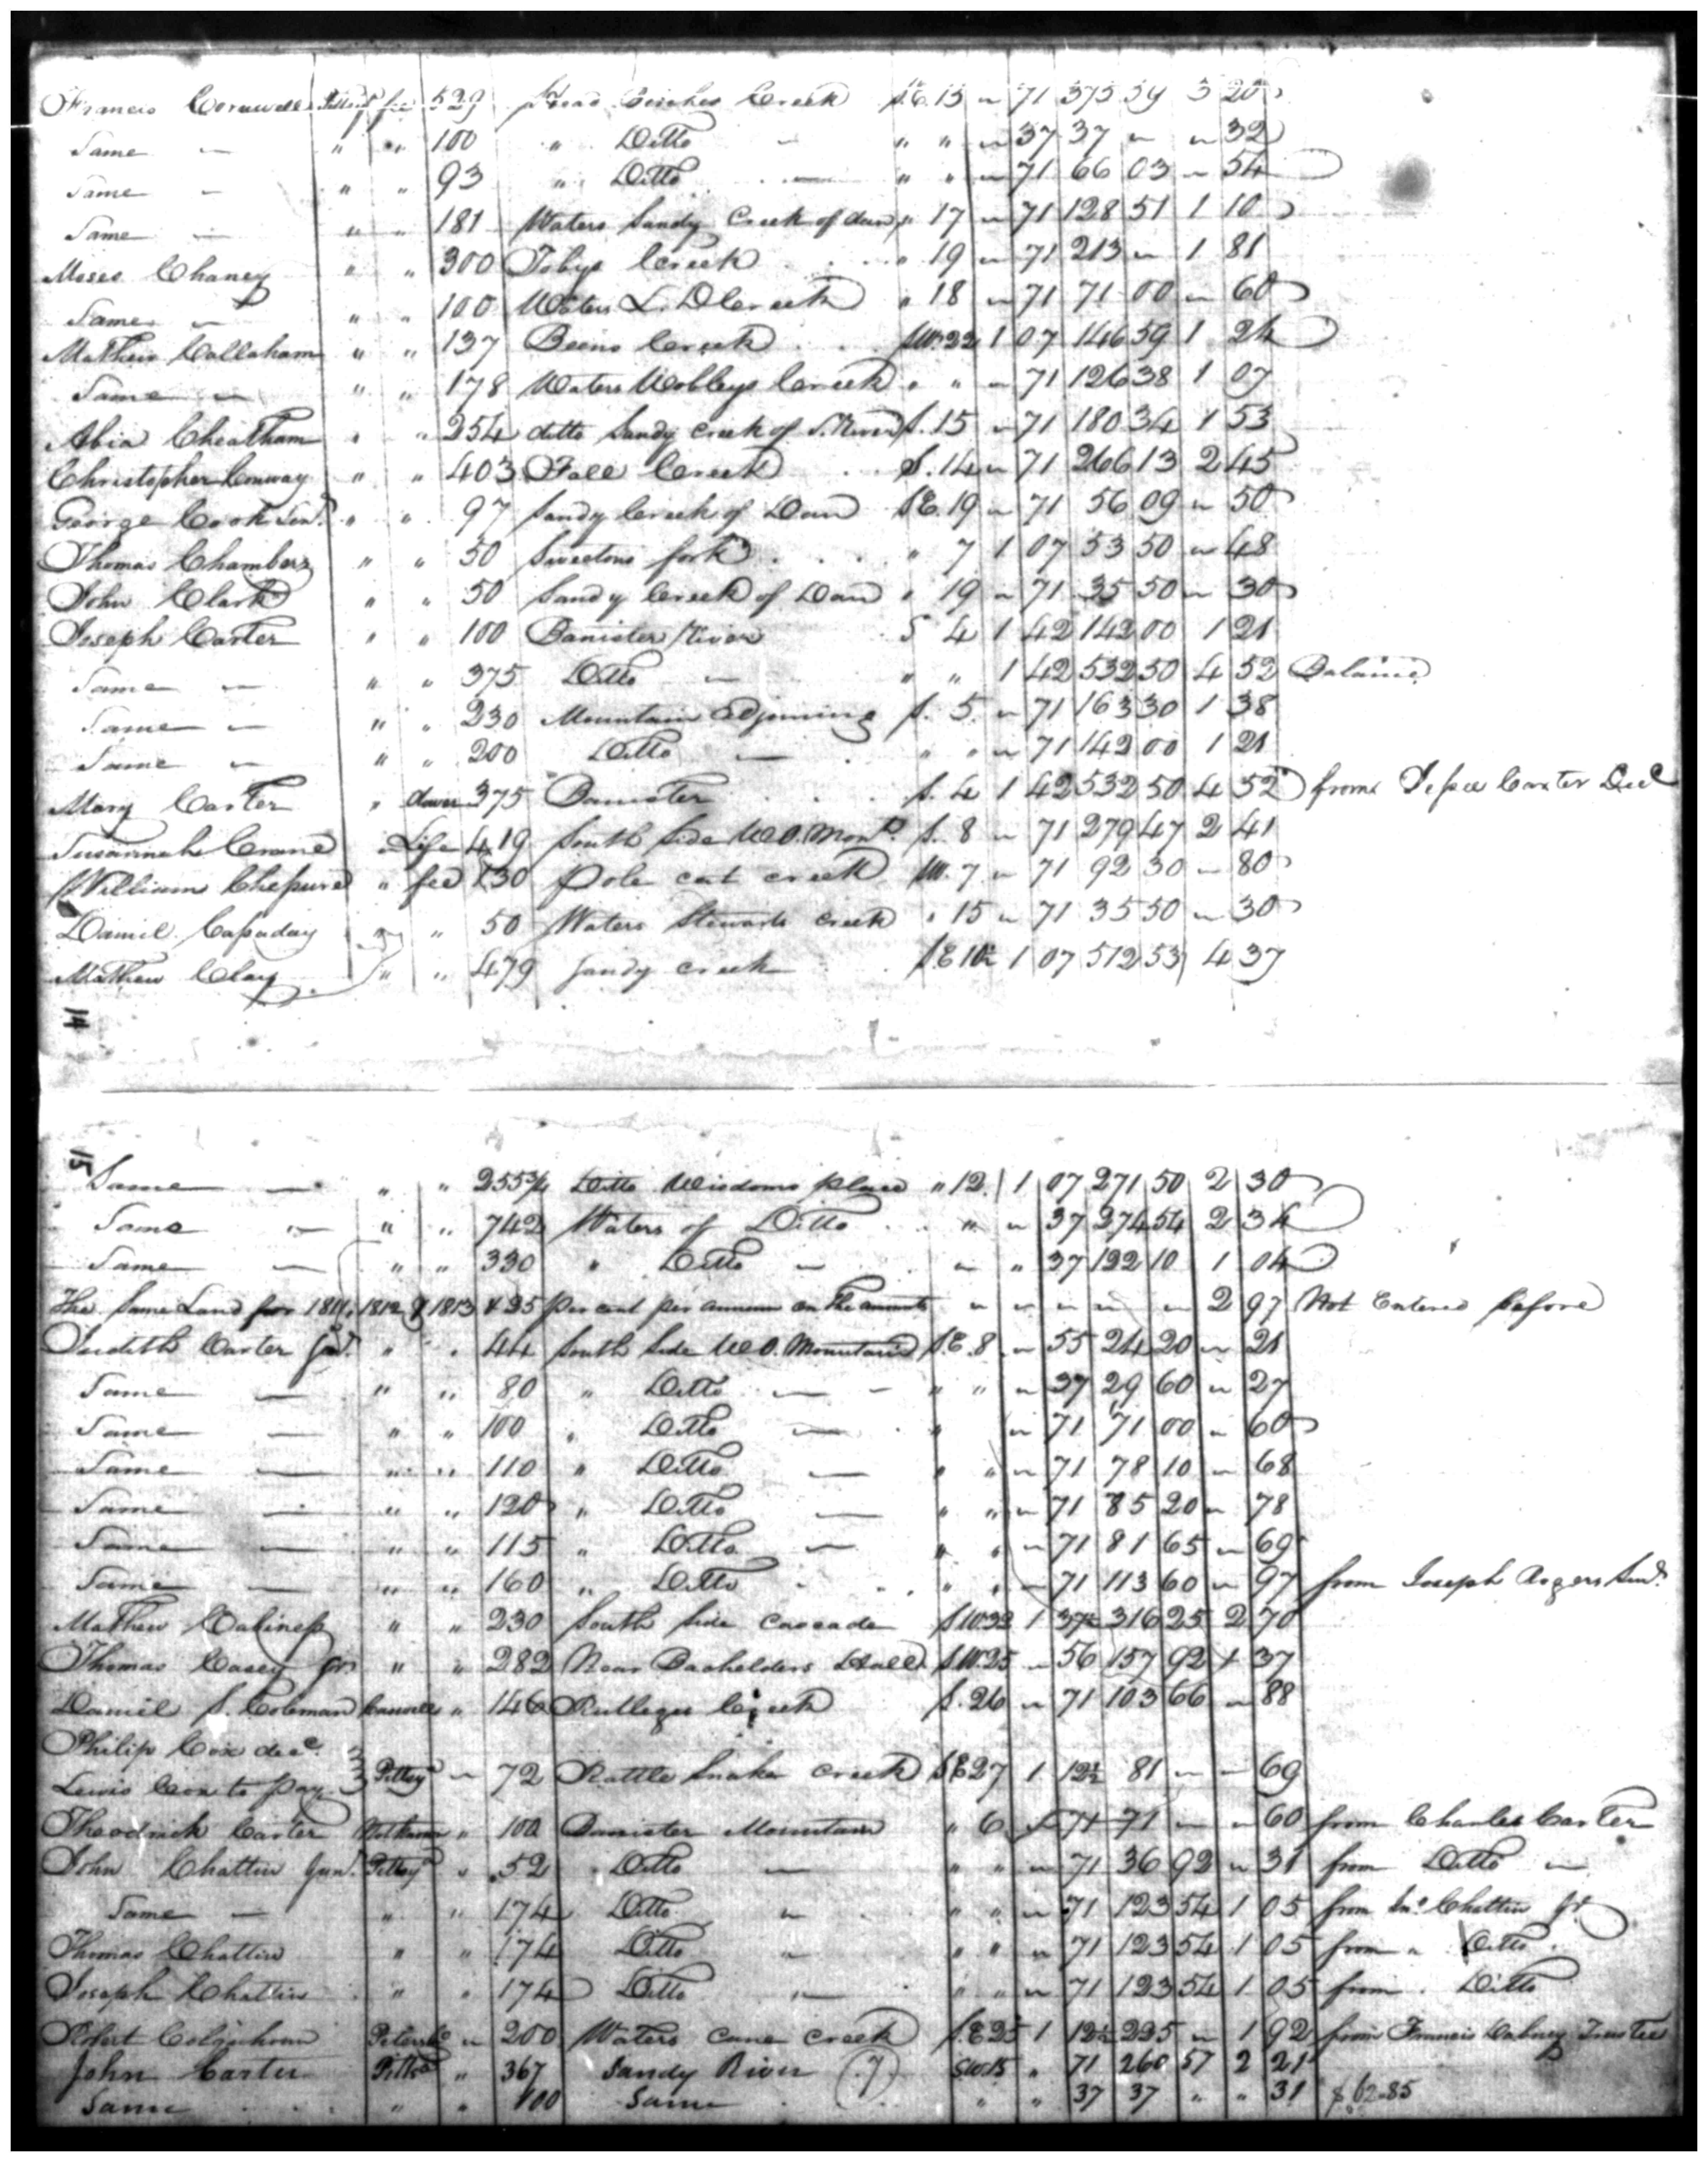 Francis Cornwell Pittsyl fee 529 Head Birches Creek S.E. 15 " 71 375 59 3 20
Same — " " 100 " Ditto — " " " 37 37 " " 32
Same — " " 93 " Ditto — " " " 71 66 03 " 54
Same — " " 181 Waters Sandy Creek of dan " 17 " 71 128 51 1 10
Moses Chaney " " 300 Tobys Creek " 19 " 71 213 " 1 81
Same — " " 100 Waters L. D Creek " 18 " 71 71 00 " 60
Mathew Callaham " " 137 Beens Creek SW. 22 1 07 146 59 1 24
Same — " " 178 Waters Mobleys Creek " " " 71 126 38 1 07
Abia Cheatham " " 254 ditto Sandy Creek of S. River S. 15 " 71 180 34 1 53
Christopher Conway " " 403 Fall Creek S. 14 " 71 266 13 2 45
George Cook Senr. " " 97 Sandy Creek of Dan S E. 19 " 71 56 09 " 50
Thomas Chambers " " 50 Sweetons fork " 7 1 07 53 50 " 48
John Clark " " 50 Sandy Creek of Dan " 19 " 71 35 50 " 30
Joseph Carter " " 100 Banister River S 4 1 42 142 00 1 21
Same — " " 375 Ditto — " " 1 42 532 50 4 52 Balance
Same — " " 230 Mountain Edjoining S. 5 " 71 163 30 1 38
Same — " " 200 Ditto — " " " 71 142 00 1 21
Mary Carter " dower 375 Banister S. 4 1 42 532 50 4 52 from Jesse Carter Decd
Susannah Crane " Life 419 South Side W O. Mont. S. 8 " 71 279 47 2 41
William Chepure " fee 130 Pole cat creek SW. 7 " 71 92 30 " 80
Daniel Cassaday " " 50 Waters Stewarts Creek " 15 " 71 35 50 " 30
Mathew Clay " " 479 Sandy creek S.E 10½ 1 07 512 53 4 37
14
15
Same — " " 255¾ Ditto Wisdoms place " 12 1 07 271 50 2 30
Same — " " 742 Waters of Ditto " " 37 274 54 2 34
Same — " " 330 " Ditto — " " 37 122 10 1 04
The Same Land for 1811, 1812 & 1813 & 25 per cent per annum on the amounts " " " " " 2 97 Not Entered before
Judith Carter " " 44 South Side W O. Mountain S.E. 8 " 55 24 20 " 21
Same — " " 80 " Ditto — " " " 37 29 60 " 27
Same — " " 100 " Ditto — " " 71 71 00 " 60
Same — " " 110 " Ditto — " " " 71 78 10 " 68
Same — " " 120 " Ditto — " " " 71 85 20 " 78
Same — " " 115 " Ditto — " " " 71 81 65 " 69
Same — " " 160 " Ditto " " " 71 113 60 " 97 from Joseph Rogers Senr.
Mathew Cabiness " " 230 South Side Cascade S W. 32 1 37½ 316 25 2 70
Thomas Casey Jr " " 282 Near Bachelders Hall S.W. 25 " 56 157 92 1 37
Daniel S. Coleman Caswell " 146 Rutleges Creek S. 26 " 71 103 66 " 88
Philip Cox decd.
Lewis Cox to pay Pittsyl " 72 Rattle Snake creek S E 27 1 12½ 81 " " 69
Theodrick Carter " 100 Banister Mountain " 6 " 71 71 " " 60 from Charles Carter
John Chattin Junr. Pittsyl " 52 Ditto — " " " 71 36 92 " 31 from Ditto —
Same — " " 174 Ditto " " " " 71 123 54 1 05 from Jno. Chattin Jr.
Thomas Chattin " " 174 Ditto " " " " 71 123 54 1 05 from " Ditto
Joseph Chattin " " 174 Ditto " " " " 71 123 54 1 05 from Ditto
Robert Colquhoun Petersbg " 200 Waters Cane creek S.E 25 1 12½ 225 " 1 92 from Francis Dabney Trustee
John Carter Pittsl " 367 Sandy River (7) SW 15 " 71 260 57 2 21
Same " " 100 Same " " 37 37 " " 31 $62.85